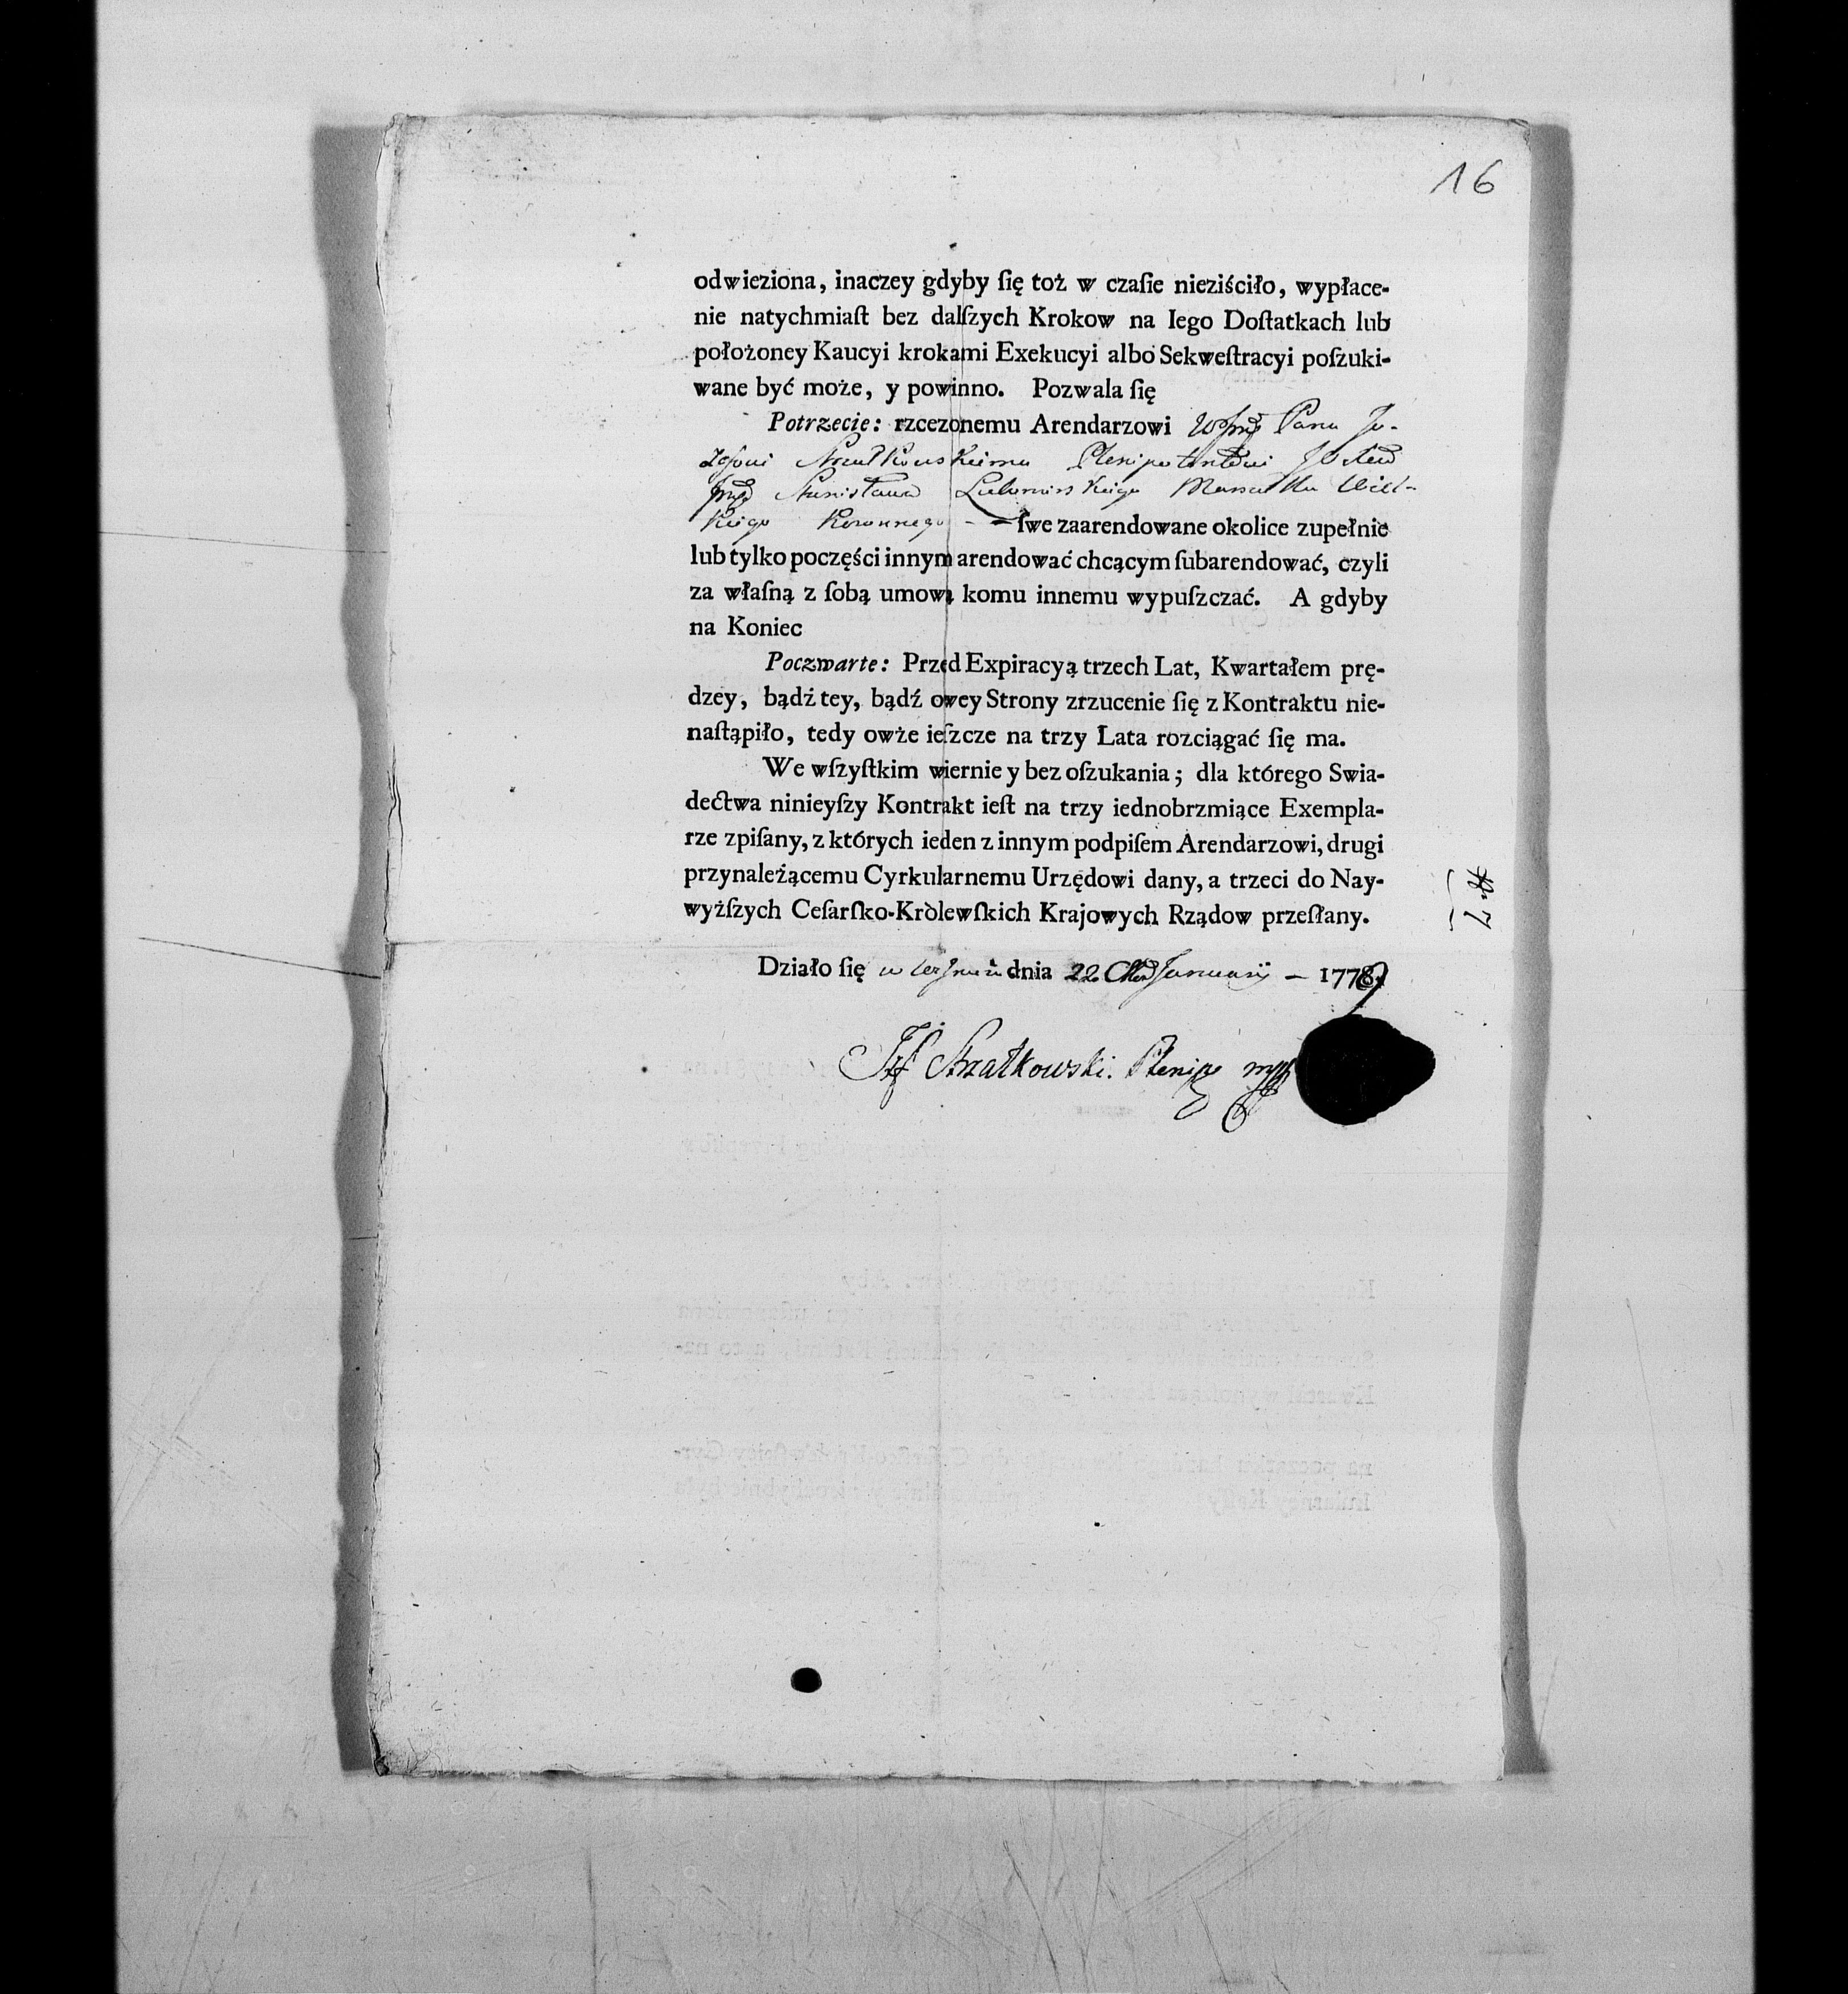 16
odwieziona, inaczey gdyby ſię toż w czaſie nieziściło, wypłace-
nie natychmiaſt bez dalſzych Krokow na Iego Doſtatkach lub
położoney Kaucyi krokami Exekucyi albo Sekweſtracyi poſzuki-
wane być może, y powinno. Pozwala ſię
Potrzecie: rzeczonemu Arendarzowi Panu Jo-
zefowi Strzałkowskiemu Plenipotentowi
Stanisława Lubomirskiego Marszałka Wiel-
kiego Koronnego - - ſwe zaarendowane okolice zupełnie
lub tylko poczęści innym arendować chcącym ſubarendować, czyli
za właſną z ſobą umową komu innemu wypuſzczać. A gdyby
na Koniec
Poczwarte: Przed Expiracyą trzech Lat, Kwartałem prę-
dzey, bądź tey, bądź owey Strony zrzucenie ſię z Kontraktu nie-
naſtąpiło, tedy owże ieſzcze na trzy Lata rozciągać ſię ma.
We wſzyſtkim wiernie y bez oſzukania; dla którego Swia-
dectwa ninieyſzy Kontrakt ieſt na trzy iednobrzmiące Exempla-
rze zpiſany, z których ieden z innym podpiſem Arendarzowi, drugi
przynależącemu Cyrkularnemu Urzędowi dany, a trzeci do Nay-
wyżſzych Ceſarſko-Kròlewſkich Krajowych Rządow przeſłany.
Działo ſię w dnia 22 Januarii - 1779
Strzałkowski. Plenip mpp